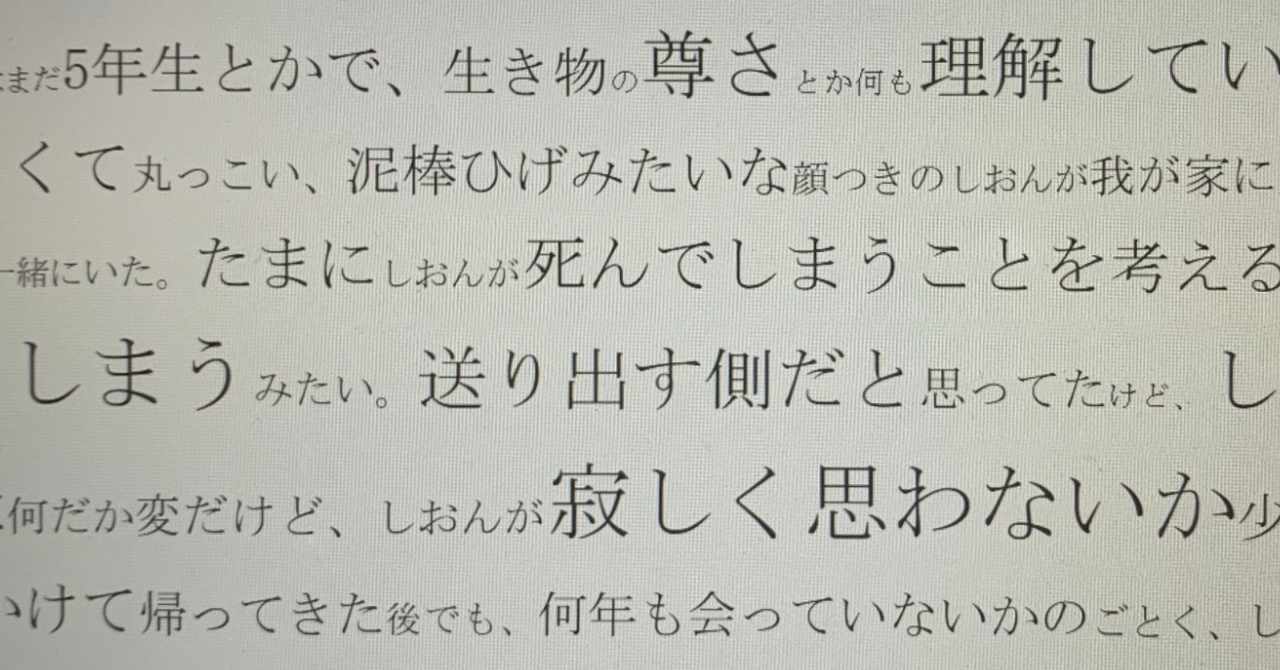 まだ5年生とかで、生き物の尊さとか何も理解してい
くて丸っこい、泥棒ひげみたいな顔つきのしおんが我が家に
一緒にいた。たまにしおんが死んでしまうことを考える
しまうみたい。送り出す側だと思ってたけど、し
何だか変だけど、しおんが寂しく思わないか少
いけて帰ってきた後でも、何年も会っていないかのごとく、し